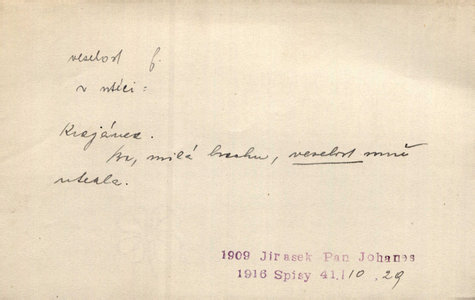 veselost f.
v utéci:
Krajánek.
milá brachu, veselost mně
utekla.
1909 Jirasek Pan Johanes
1916 Spisy 41./10, 29